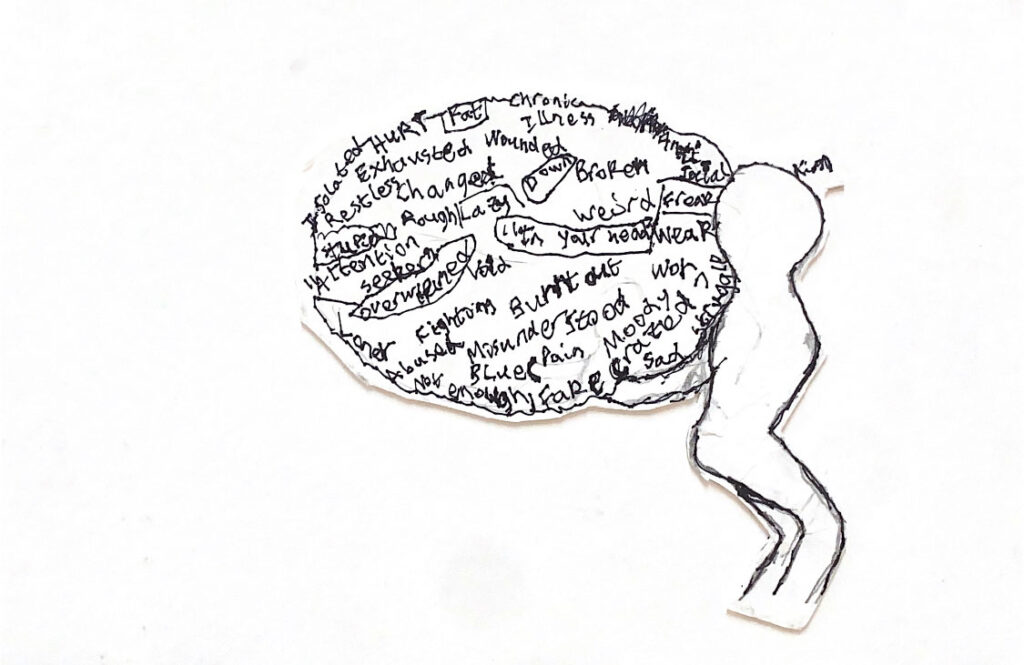 Chronic
Illness
Fat
HURT
Isolated
Exhausted Wounded
Restless Changed
Down Broken
Social
Rough Lazy
Weird Freak
in your head Weak
Attention
seeker
overwhelmed
Void
Burnt out
Fighting
Loner
Abused Misunderstood Moody
Struggle
BLue Pain
Sad
Not enough Fake